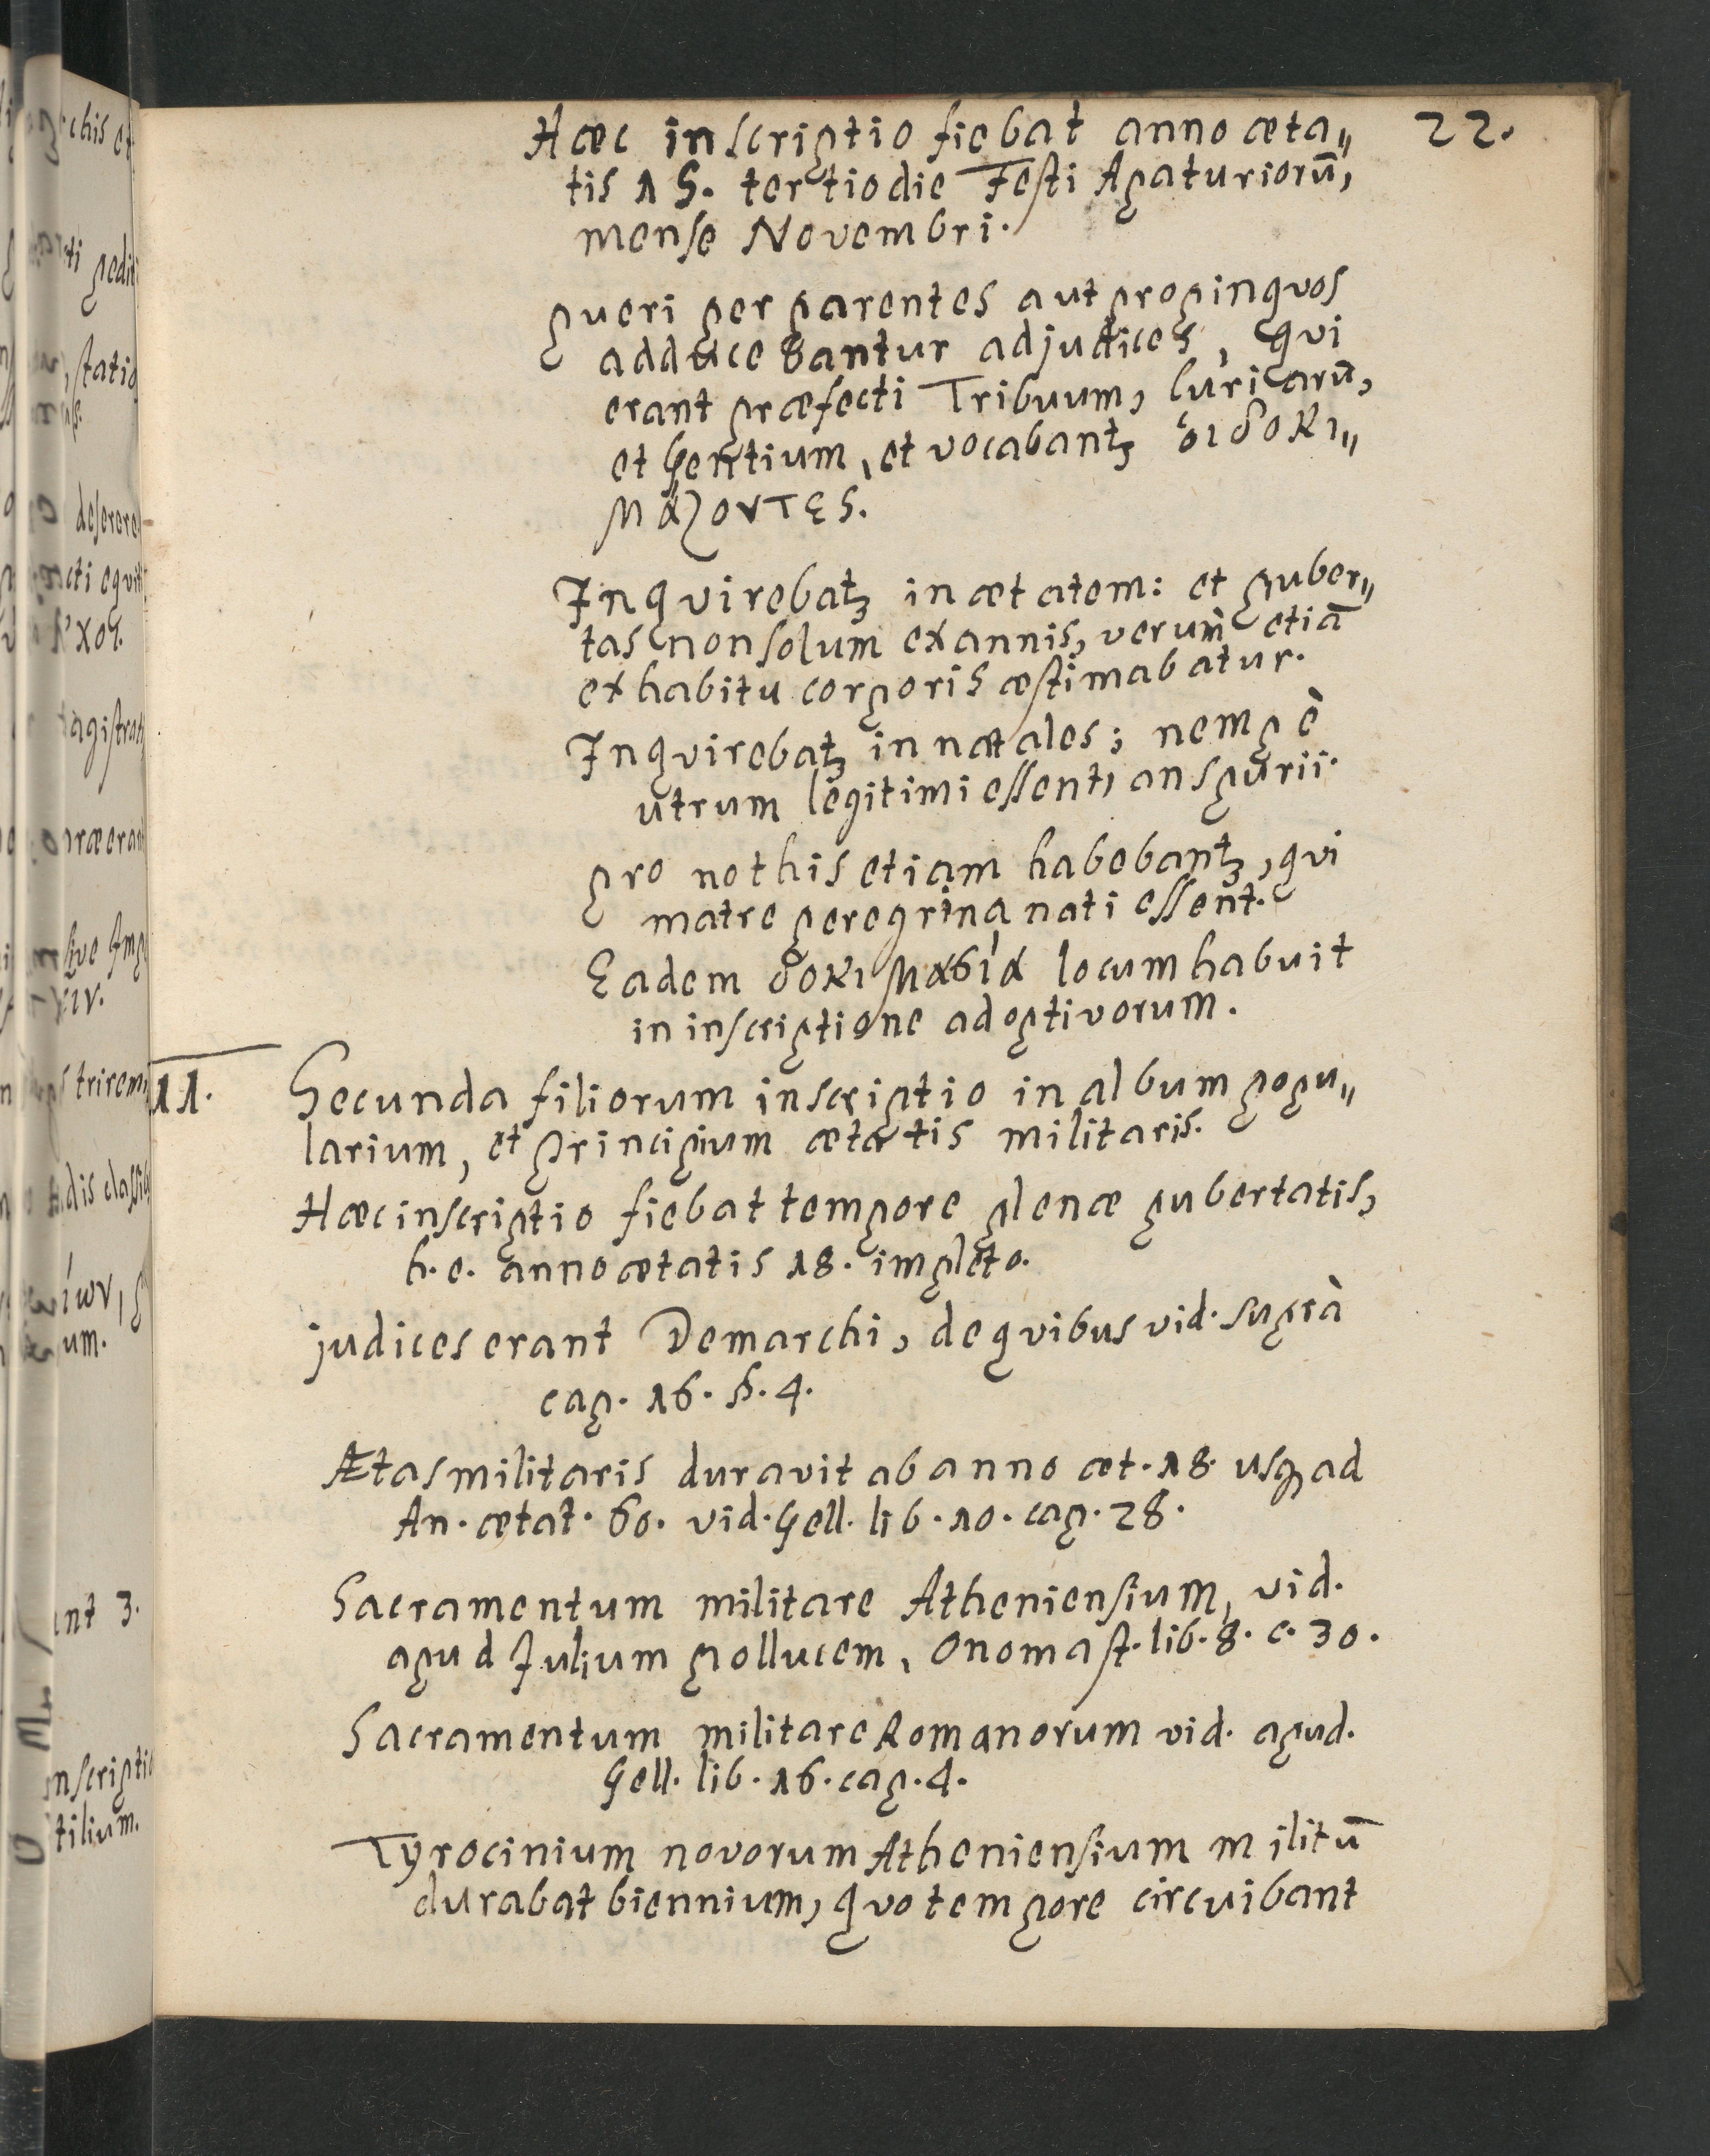 22.
Hæc inscriptio fiebat anno æta„
tis 15. tertio die Festi Apaturiorū,
mense Novembri.
Pueri per parentes aut propinqvos
adducebantur ad judices, qvi
erant præfecti Tribuum, Curiarū,
et Gentium, et vocabantꝫ οἱ δοκι„
μάζοντες.
Inqvirebatꝫ in ætatem: et puber„
tas non solum ex annis, verùm etiā
ex habitu corporis æstimabatur.
Inqvirebatꝫ in natales; nempè
utrum legitimi essent, an spurii.
Pro nothis etiam habebantꝫ, qvi
matre peregrina nati essent.
Eadem δοκιμασία locum habuit
in inscriptione adoptivorum.
11. Secunda filiorum inscriptio in album popu„
larium, et principium ætatis militaris.
Hæc inscriptio fiebat tempore plenæ pubertatis,
h. e. anno ætatis 18. impleto.
judices erant Demarchi, de qvibus vid. suprà
cap. 16. §. 4.
Ætas militaris duravit ab anno æt. 18. usqꝫ ad
An. ætat. 60. vid. Gell. lib. 10. cap. 28.
Sacramentum militare Atheniensium, vid.
apud Julium Pollucem, Onomast. lib. 8. c. 30.
Sacramentum militare Romanorum vid. apud.
Gell. lib. 16. cap. 4.
Tyrocinium novorum Atheniensium militū
durabat biennium, qvo tempore circuibant